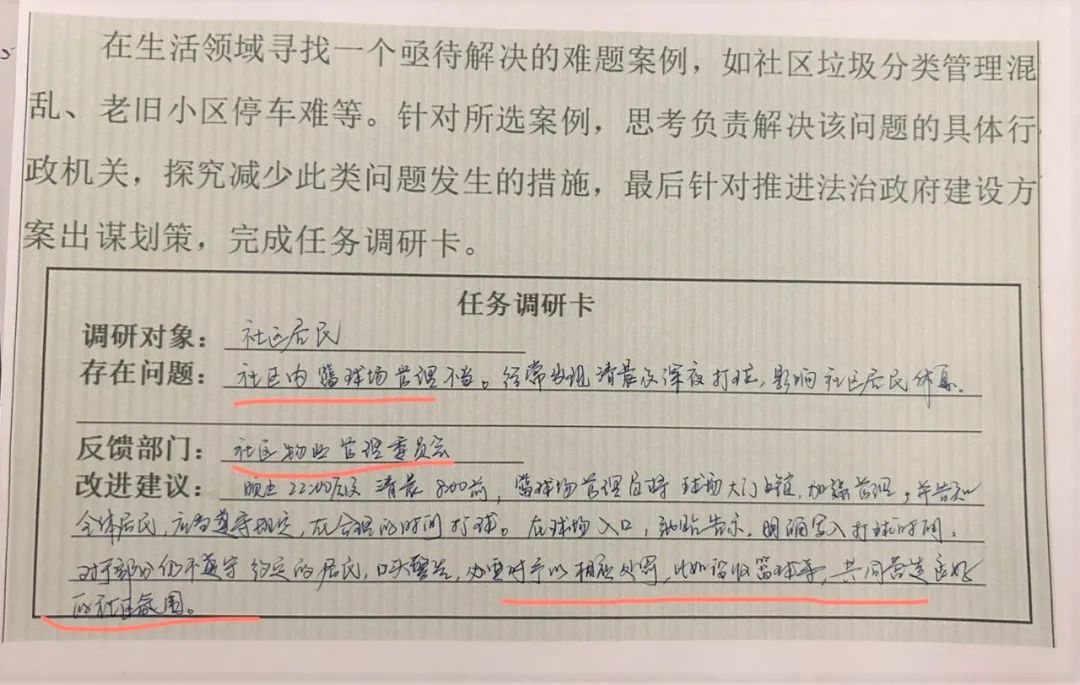 在生活领域寻找一个亟待解决的难题案例，如社区垃圾分类管理混
乱、老旧小区停车难等。针对所选案例，思考负责解决该问题的具体行
政机关，探究减少此类问题发生的措施，最后针对推进法治政府建设方
案出谋划策，完成任务调研卡。
任务调研卡
调研对象：社区居民
存在问题：社区内篮球场管理不当。经常发现清晨及深夜打球，影响社区居民休息。
反馈部门：社区物业管理委员会
改进建议：晚上22:00后及清晨8:00前，篮球场管理员将球场大门上锁，加强管理，并告知
全体居民，应当遵守规定，在合理的时间打球。在球场入口，张贴告示，明确写入打球时间，
对于部分仍不遵守约定的居民，口头警告，必要时予以相应处罚，比如没收篮球等，共同营造良好
的社区氛围。